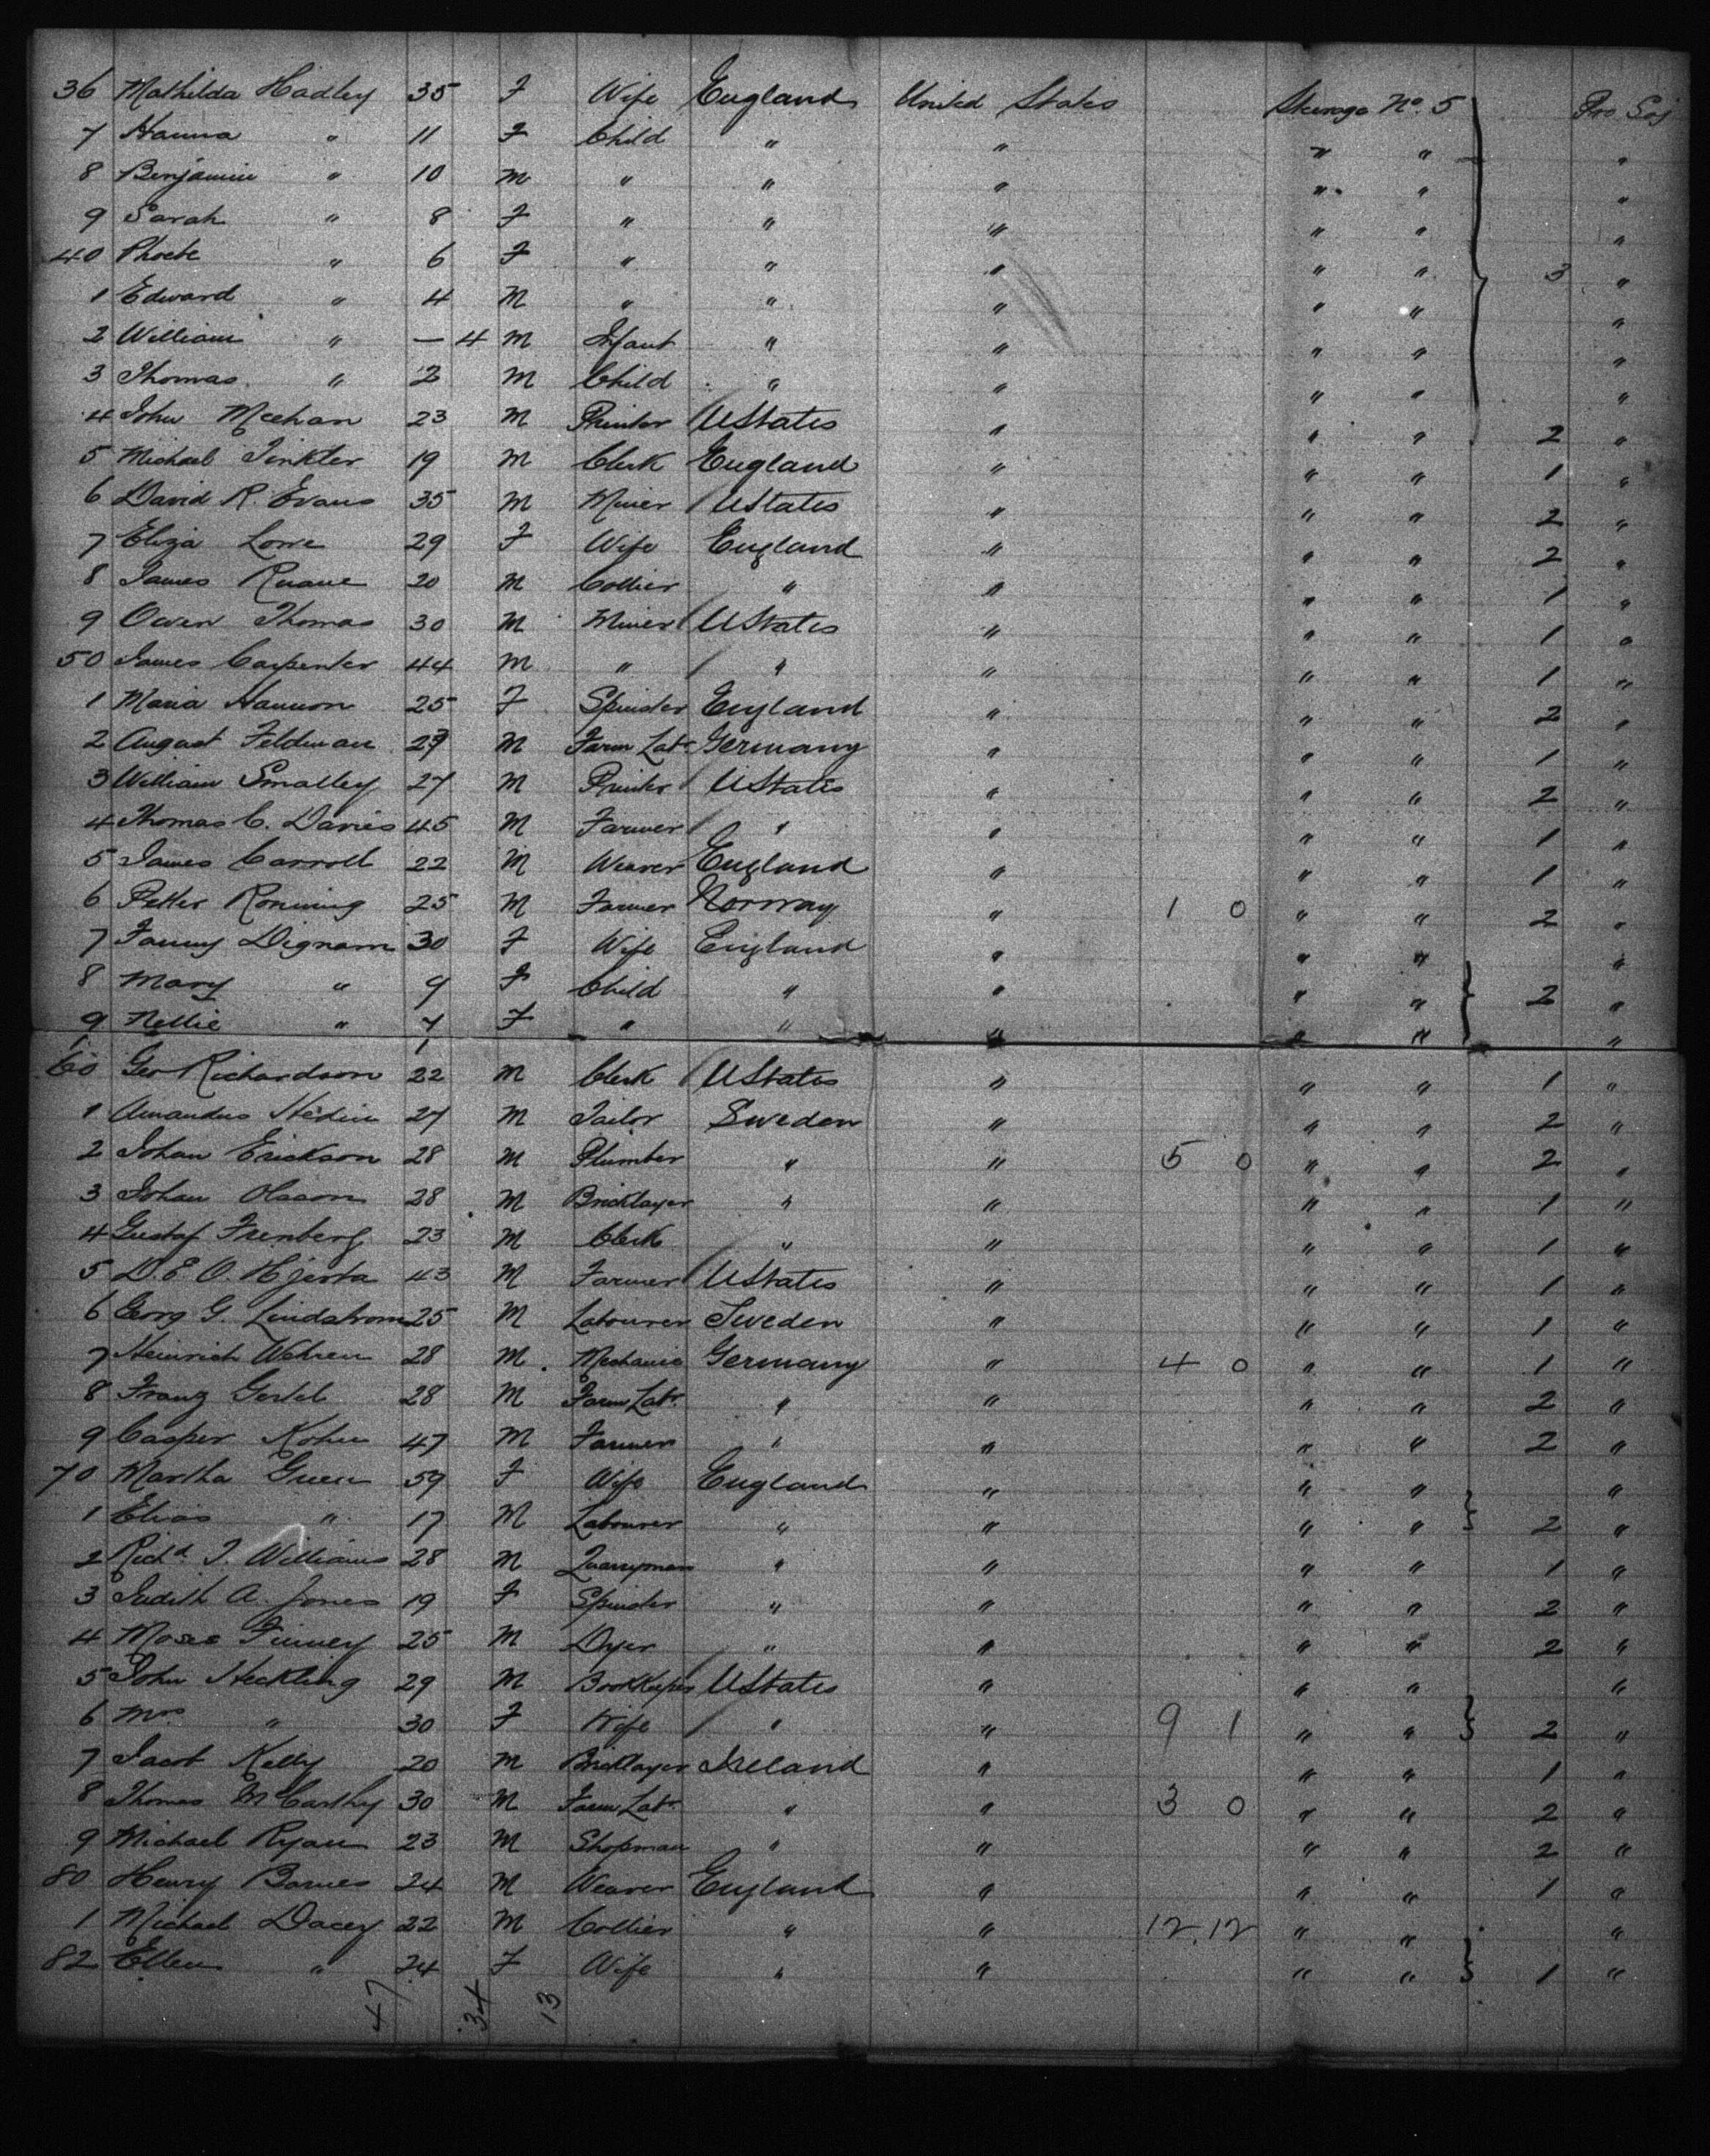 36 Mathilda Hadley 35 F Wife England United States Steerage No. 5 Pro Soj
7 Hanna " 11 F Child " " " " "
8 Benjamin " 10 M " " " " " "
9 Sarah " 8 F " " " " " "
40 Phoebe " 6 F " " " " " 3 "
1 Edward " 4 M " " " " " "
2 William " — 4 M Infant " " " " "
3 Thomas " 2 M Child " " " " "
4 John Meehan 23 M Printer UStates " " " 2 "
5 Michael Tinkler 19 M Clerk England " " " 1 "
6 David R. Evans 35 M Miner UStates " " " 2 "
7 Eliza Lowe 29 F Wife England " " " 2 "
8 James Ruane 20 M Collier " " " " 1 "
9 Owen Thomas 30 M Miner UStates " " " 1 "
50 James Carpenter 44 M " " " " " 1 "
1 Maria Hannon 25 F Spinster England " " " 2 "
2 August Feldman M Farm Labr Germany " " " 1 "
3 William Smalley 27 M Printer UStates " " " 2 "
4 Thomas C. Davies 45 M Farmer " " " " 1 "
5 James Carroll 22 M Weaver England " " " 1 "
6 Petter Ronning 25 M Farmer Norway " 1 0 " " 2 "
7 Fanny Dignam 30 F Wife England " " " "
8 Mary " 9 F Child " " " " 2 "
9 Nellie " 7 F " " " " " "
60 Geo Richardson 22 M Clerk UStates " " " 1 "
1 Amandus Hedin 27 M Tailor Sweden " " " 2 "
2 Johan Erickson 28 M Plumber " " 5 0 " " 2 "
3 Johan Olsson 28 M Bricklayer " " " " 1 "
4 Gustaf Frenberg 23 M Clerk " " " " 1 "
5 D. E. O. Hjerta 43 M Farmer UStates " " " 1 "
6 Georg G. Lindstrom 25 M Labourer Sweden " " " 1 "
7 Heinrich Wehren 28 M Mechanic Germany " 4 0 " " 1 "
8 Franz 28 M Farm Labr " " " " 2 "
9 Casper Kohn 47 M Farmer " " " " 2 "
70 Martha Green 59 F Wife England " " " "
1 Elias " 17 M Labourer " " " " 2 "
2 Richd. T. Williams 28 M Quarryman " " " " 1 "
3 Judith A. Jones 19 F Spinster " " " " 2 "
4 Moses Finney 25 M Dyer " " " " 2 "
5 John Heckling 29 M BookKeeper UStates " " " "
6 Mrs " 30 F Wife " " 9 1 " " 2 "
7 Jacob Kelly 20 M Bricklayer Ireland " " " 1 "
8 Thomas McCarthy 30 M Farm Labr " " 3 0 " " 2 "
9 Michael Ryan 23 M Shopman " " " " 2 "
80 Henry Barnes 24 M Weaver England " " " 1 "
1 Michael Dacey 22 M Collier " " 12 12 " " "
82 Ellen " 24 F Wife " " " " 1 "
47 34 13